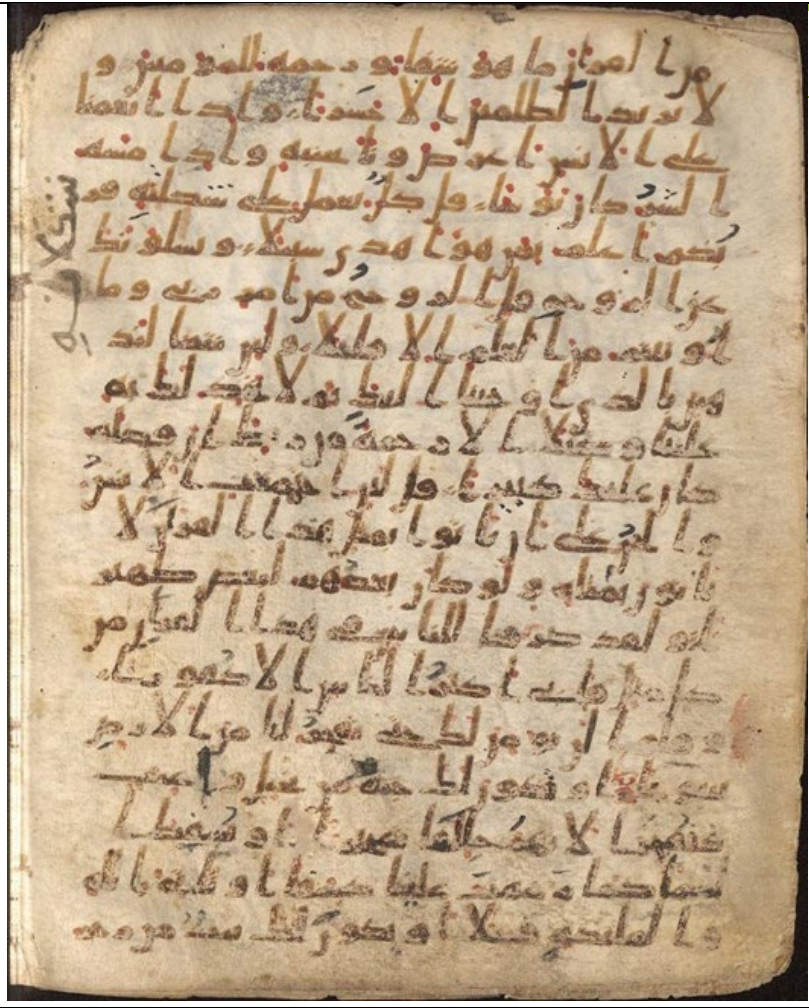 من القران ما هو شفا و رحمة للمومنين و
لا يزيد الظلمين الا خسارا و اذا انعمنا
على الانسن اعرض و نا بجنبه و اذا مسه
الشر كان يوسا قل كل يعمل على شكلته فر
بكم اعلم بمن هو اهدى سبيلا و يسلونك
عن الروح قل الروح من امر ربي و ما
اوتيتم من العلم الا قليلا و لين شينا لنذ
هبن بالذي اوحينا اليك ثم لا تجد لك به
علينا وكيلا الا رحمة من ربك ان فضله
كان عليك كبيرا قل لين اجتمعت الانس
و الجن على ان ياتوا بمثل هذا القران لا
ياتون بمثله و لو كان بعضهم لبعض ظهير
ا و لقد صرفنا للناس في هذا القران من
كل مثل فابى اكثر الناس الا كفورا
و قالوا لن نومن لك حتى تفجر لنا من الارض
ينبوعا او تكون لك جنة من نخيل و عنب
فتفجر الانهر خللها تفجيرا او تسقط ا
لسما كما زعمت علينا كسفا او تاتي بالله
و الملئكة قبيلا او يكون لك بيت من